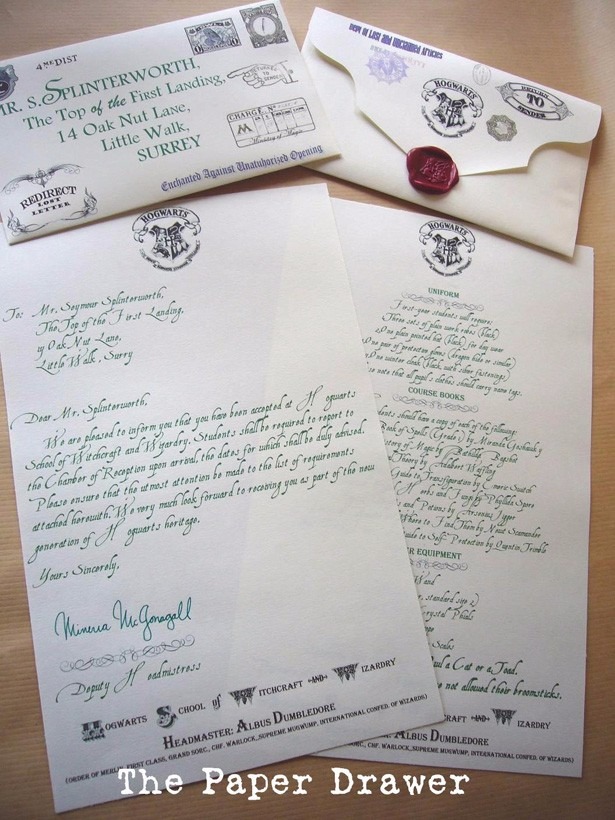 4TH DIST
MR. S. SPLINTERWORTH,
The Top of the First Landing,
14 Oak Nut Lane,
Little Walk,
SURREY
RETURNED
TO
SENDER
CHARGE
M
Ministry of Magic
REDIRECT
LOST
LETTER
Enchanted Against Unatuhorized Opening
Dept of Lost and Uncollected Articles
HOGWARTS
RETURN
TO
SENDER
HOGWARTS
To: Mr. Seymour Splinterworth,
The Top of the First Landing,
Oak Nut Lane,
Little Walk, Surry
Dear Mr. Splinterworth,
We are pleased to inform you that you have been accepted at Hogwarts
School of Witchcraft and Wizardry. Students shall be required to report to
the Chamber of Reception upon arrival, the dates for which shall be duly advised.
Please ensure that the utmost attention be made to the list of requirements
attached herewith. We very much look forward to receiving you as part of the new
generation of Hogwarts heritage.
Yours Sincerely,
Minerva McGonagall
Deputy Headmistress
HOGWARTS SCHOOL of WITCHCRAFT AND WIZARDRY
HEADMASTER: ALBUS DUMBLEDORE
(ORDER OF MERLIN, FIRST CLASS, GRAND SORC., CHF. WARLOCK,,SUPREME MUGWUMP, INTERNATIONAL CONFED. OF WIZARDS)
HOGWARTS
UNIFORM
First-year students will require:
Three sets of plain work robes (black)
One plain pointed hat (black) for day wear
One pair of protective gloves (dragon hide or similar)
One winter cloak (black, with silver fastenings)
note that all pupil's clothes should carry name tags.
COURSE BOOKS
students should have a copy of each of the following:
Book of Spells (Grade 1) by Miranda Goshawk
History of Magic by Bathilda Bagshot
Theory by Adalbert Waffling
Guide to Transfiguration by Emeric Switch
Herbs and Fungi by Phyllida Spore
and Potions by Arsenius Jigger
Where to Find Them by Newt Scamander
Guide to Self-Protection by Quentin Trimble
EQUIPMENT
Wand
standard size 2)
crystal Phials
Scales
a Cat or a Toad.
re not allowed their broomsticks.
CRAFT AND WIZARDRY
ALBUS DUMBLEDORE
SORC., CHF. WARLOCK,,SUPREME MUGWUMP, INTERNATIONAL CONFED. OF WIZARDS)
The Paper Drawer